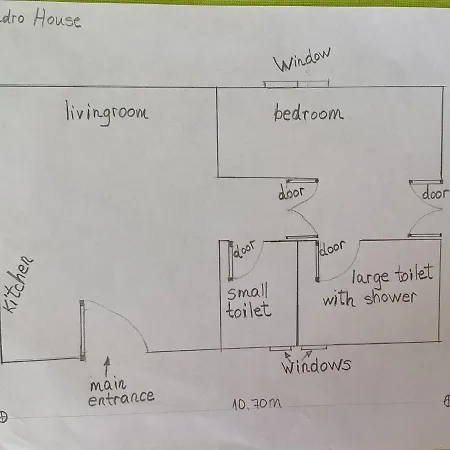 House
Window
livingroom
bedroom
door
door
door
door
Kitchen
large toilet
with shower
small
toilet
windows
main
entrance
10.70m